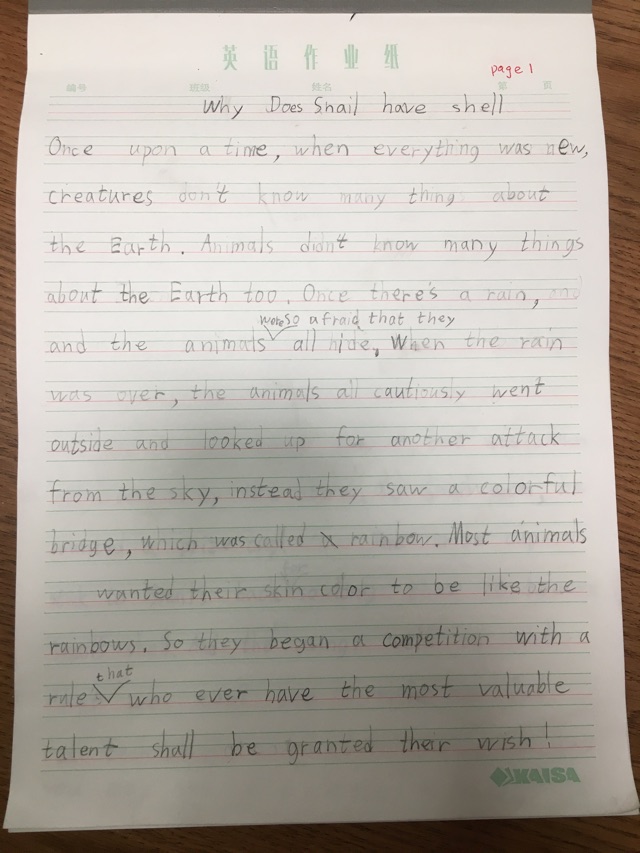 英语作业纸
page 1
编号 班级 姓名 第 页
Why Does Snail have shell
Once upon a time, when everything was new,
creatures don't know many thing about
the Earth. Animals didn't know many things
about the Earth too. Once there's a rain, and
were so afraid that they
and the animals all hide, When the rain
was over, the animals all cautiously went
outside and looked up for another attack
from the sky, instead they saw a colorful
bridge, which was called rainbow. Most animals
wanted their skin color to be like the
rainbows. So they began a competition with a
that
rule who ever have the most valuable
talent shall be granted their wish!
KAISA